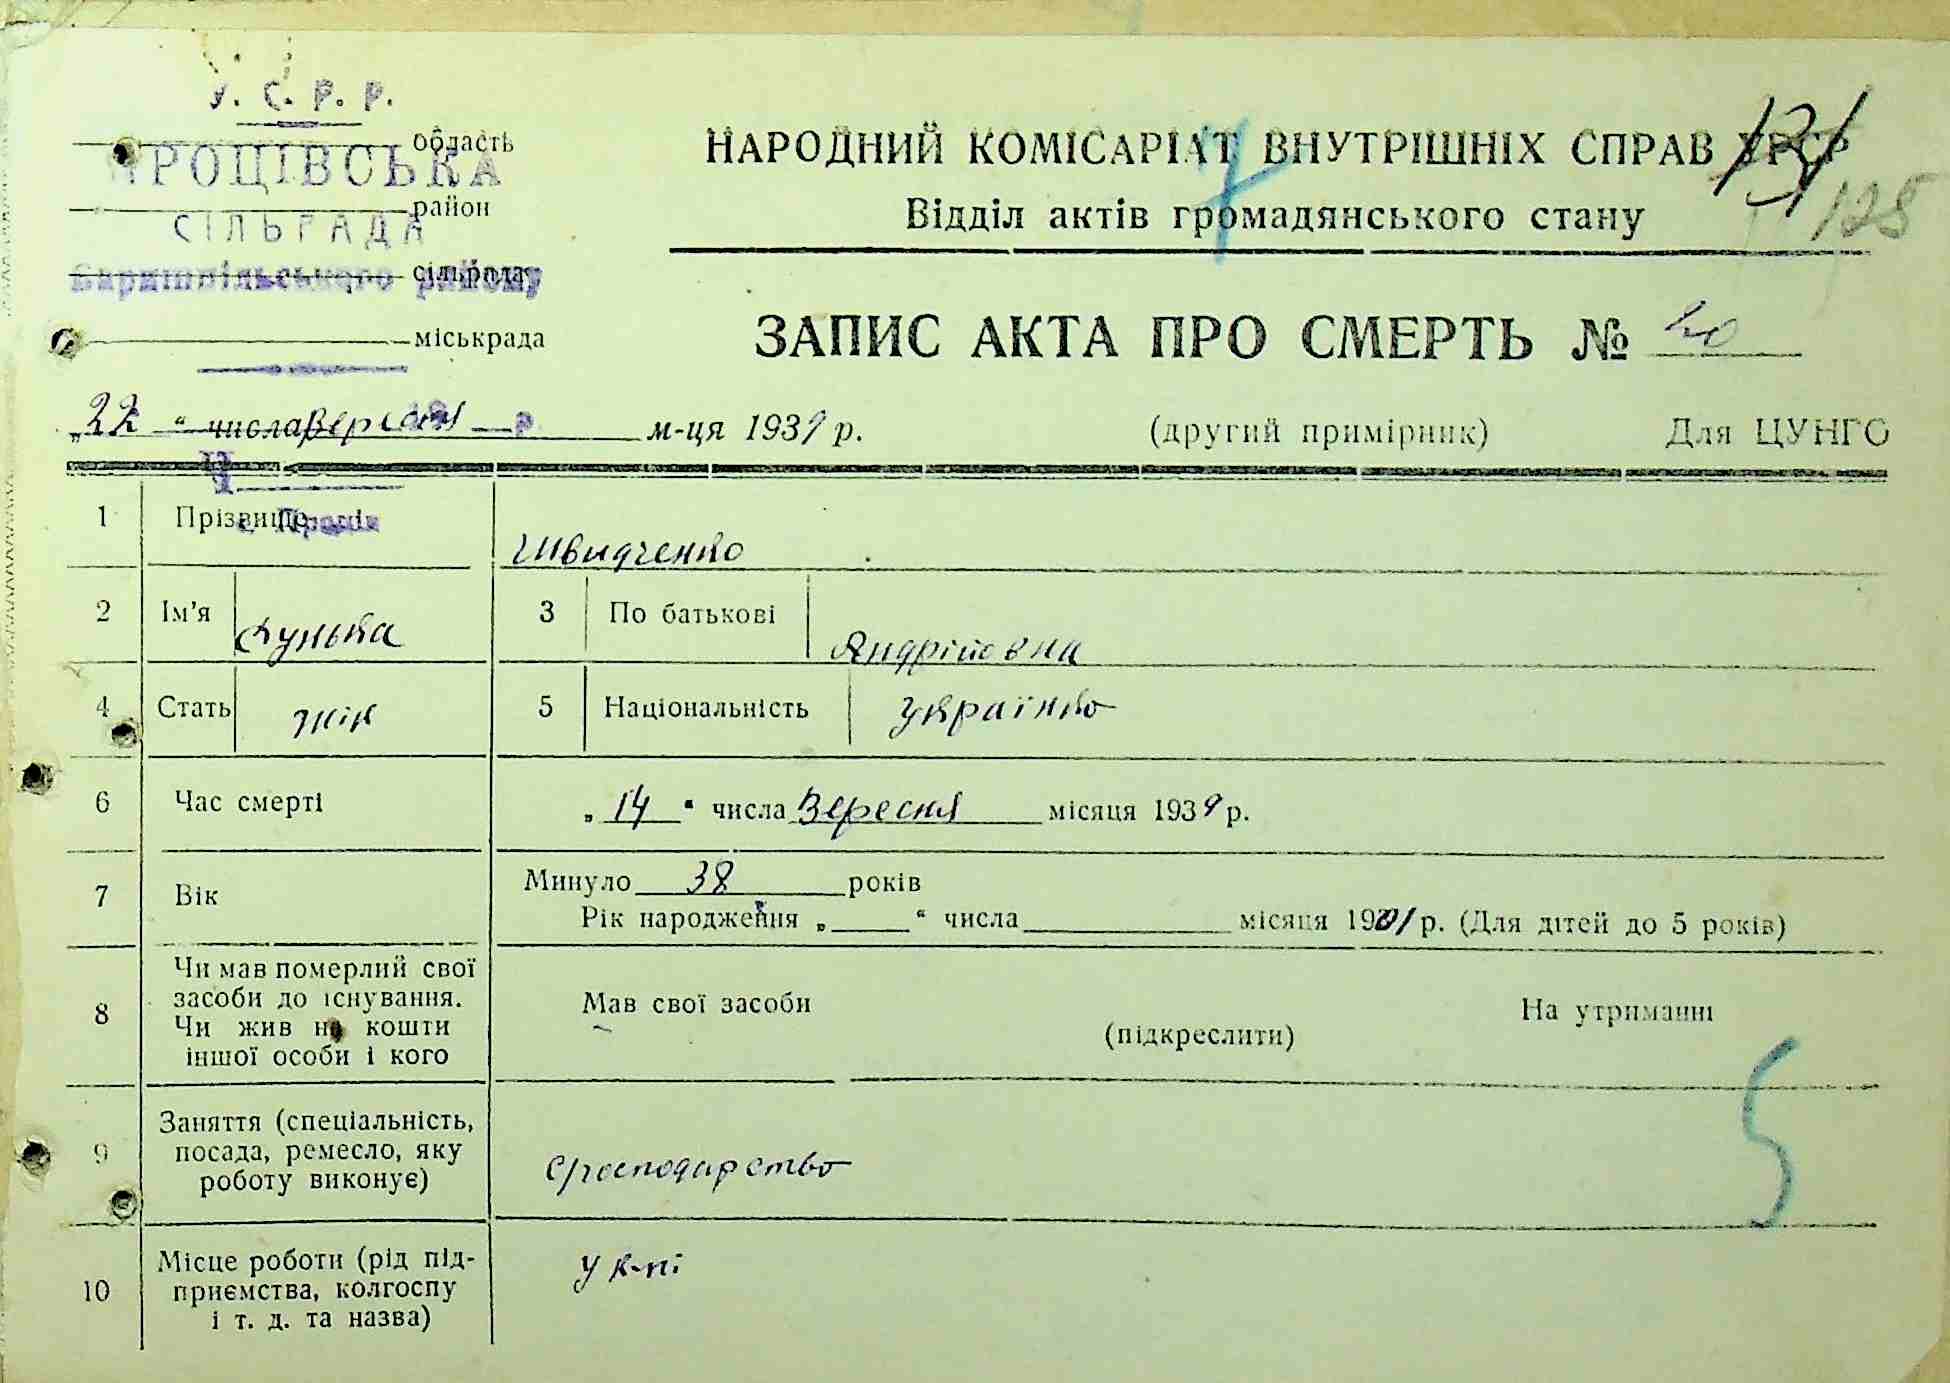 У. С. Р. Р.
область
ПРОЦІВСЬКА
район
СІЛЬРАДА
Баришпільського району
сільрада
міськрада
НАРОДНИЙ КОМІСАРІАТ ВНУТРІШНІХ СПРАВ УРСР
131
7
Відділ актів громадянського стану
125
ЗАПИС АКТА ПРО СМЕРТЬ №
„22“ числа Вересня м-ця 1939 р.
(другий примірник) Для ЦУНГО
1 Прізвище Швидченко
2 Ім’я Дунька 3 По батькові Андрійовна
4 Стать жін 5 Національність Українка
6 Час смерті „14“ числа Вересня місяця 1939 р.
7 Вік Минуло 38 років
Рік народження „ “ числа місяця 1901 р. (Для дітей до 5 років)
8 Чи мав померлий свої засоби до існування. Чи жив на кошти іншої особи і кого
Мав свої засоби (підкреслити) На утриманні
5
9 Заняття (спеціальність, посада, ремесло, яку роботу виконує)
10 Місце роботи (рід під-
приємства, колгоспу
і т. д. та назва)